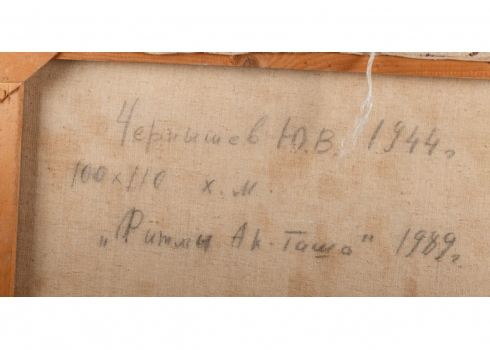 Чернышев Ю.В. 1944г
100х110 х.м.
„Ритмы Ак-Таша" 1989г.